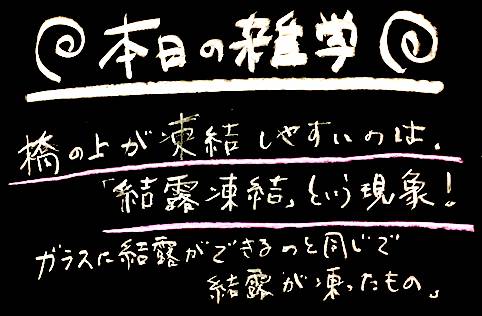 本日の雑学
橋の上が凍結しやすいのは、
「結露凍結」という現象!
ガラスに結露ができるのと同じで
結露が凍ったもの。